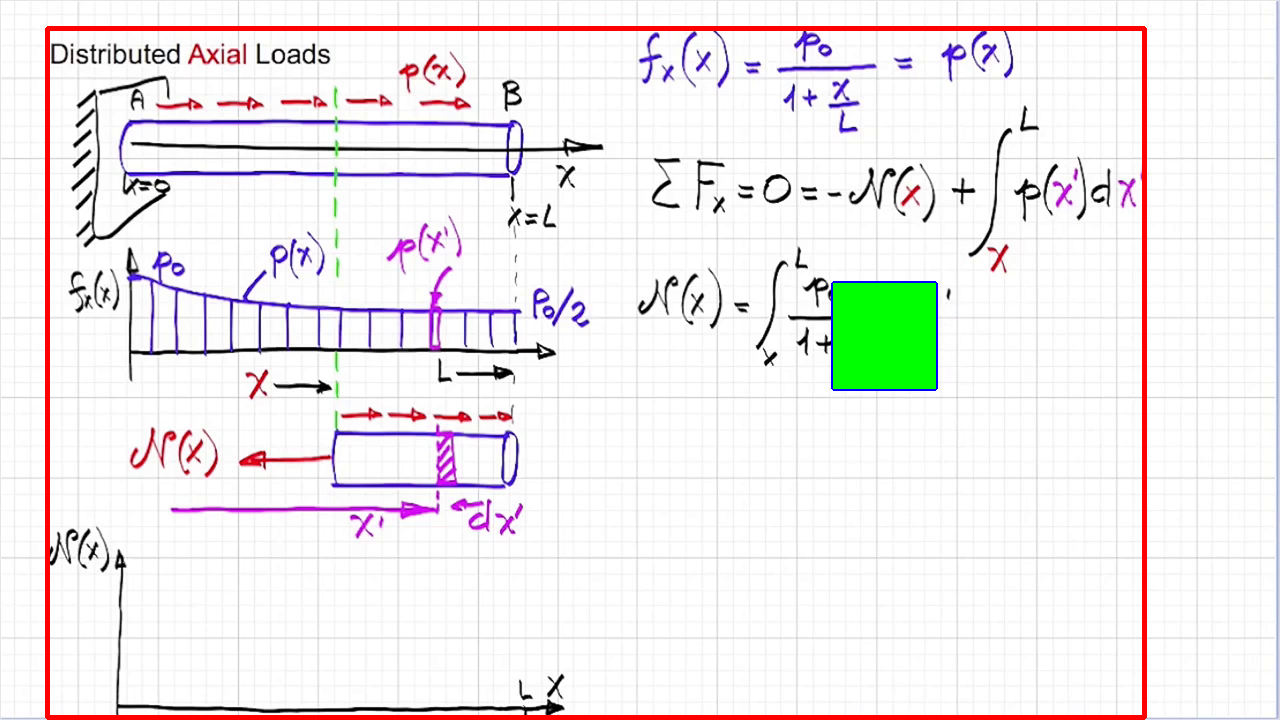 Distributed Axial Loads
p(x)
A
B
x=0
x
x=L
f_x(x)
p_0
p(x)
p(x')
P_0/2
x
L
N(x)
x'
dx'
N(x)
L
x
f_x(x) = p_0 / (1 + x/L) = p(x)
ΣF_x = 0 = -N(x) + ∫_x^L p(x')dx'
N(x) = ∫_x^L p / 1+